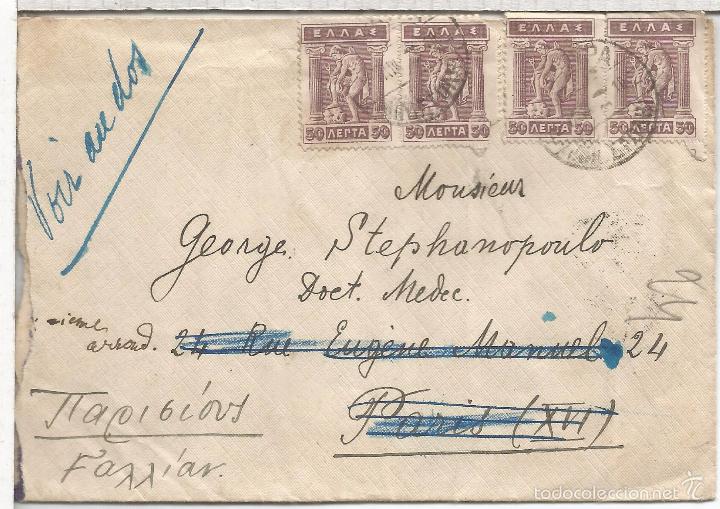 ΕΛΛΑΣ ΕΛΛΑΣ ΕΛΛΑΣ ΕΛΛΑΣ
50 ΛΕΠΤΑ 50 50 ΛΕΠΤΑ 50 50 ΛΕΠΤΑ 50 50 ΛΕΠΤΑ 50
Voir au dos
Monsieur
George Stephanopoulo
Doct. Medec.
-sieme
arrond. 24 Rue Eugène Manuel 24
Paris (XVI)
Παρισίους
Γαλλίαν.
todocoleccion.net